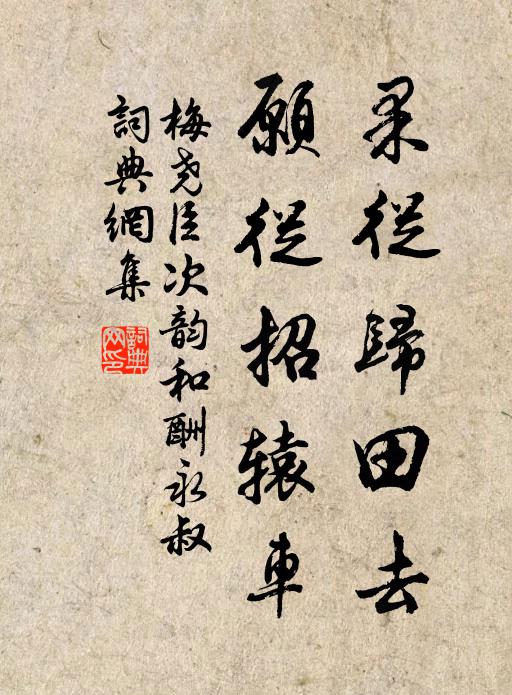 果从歸田去
願从招辕車
梅尧臣次韵和酬永叔
詞典網集
詞典
网印